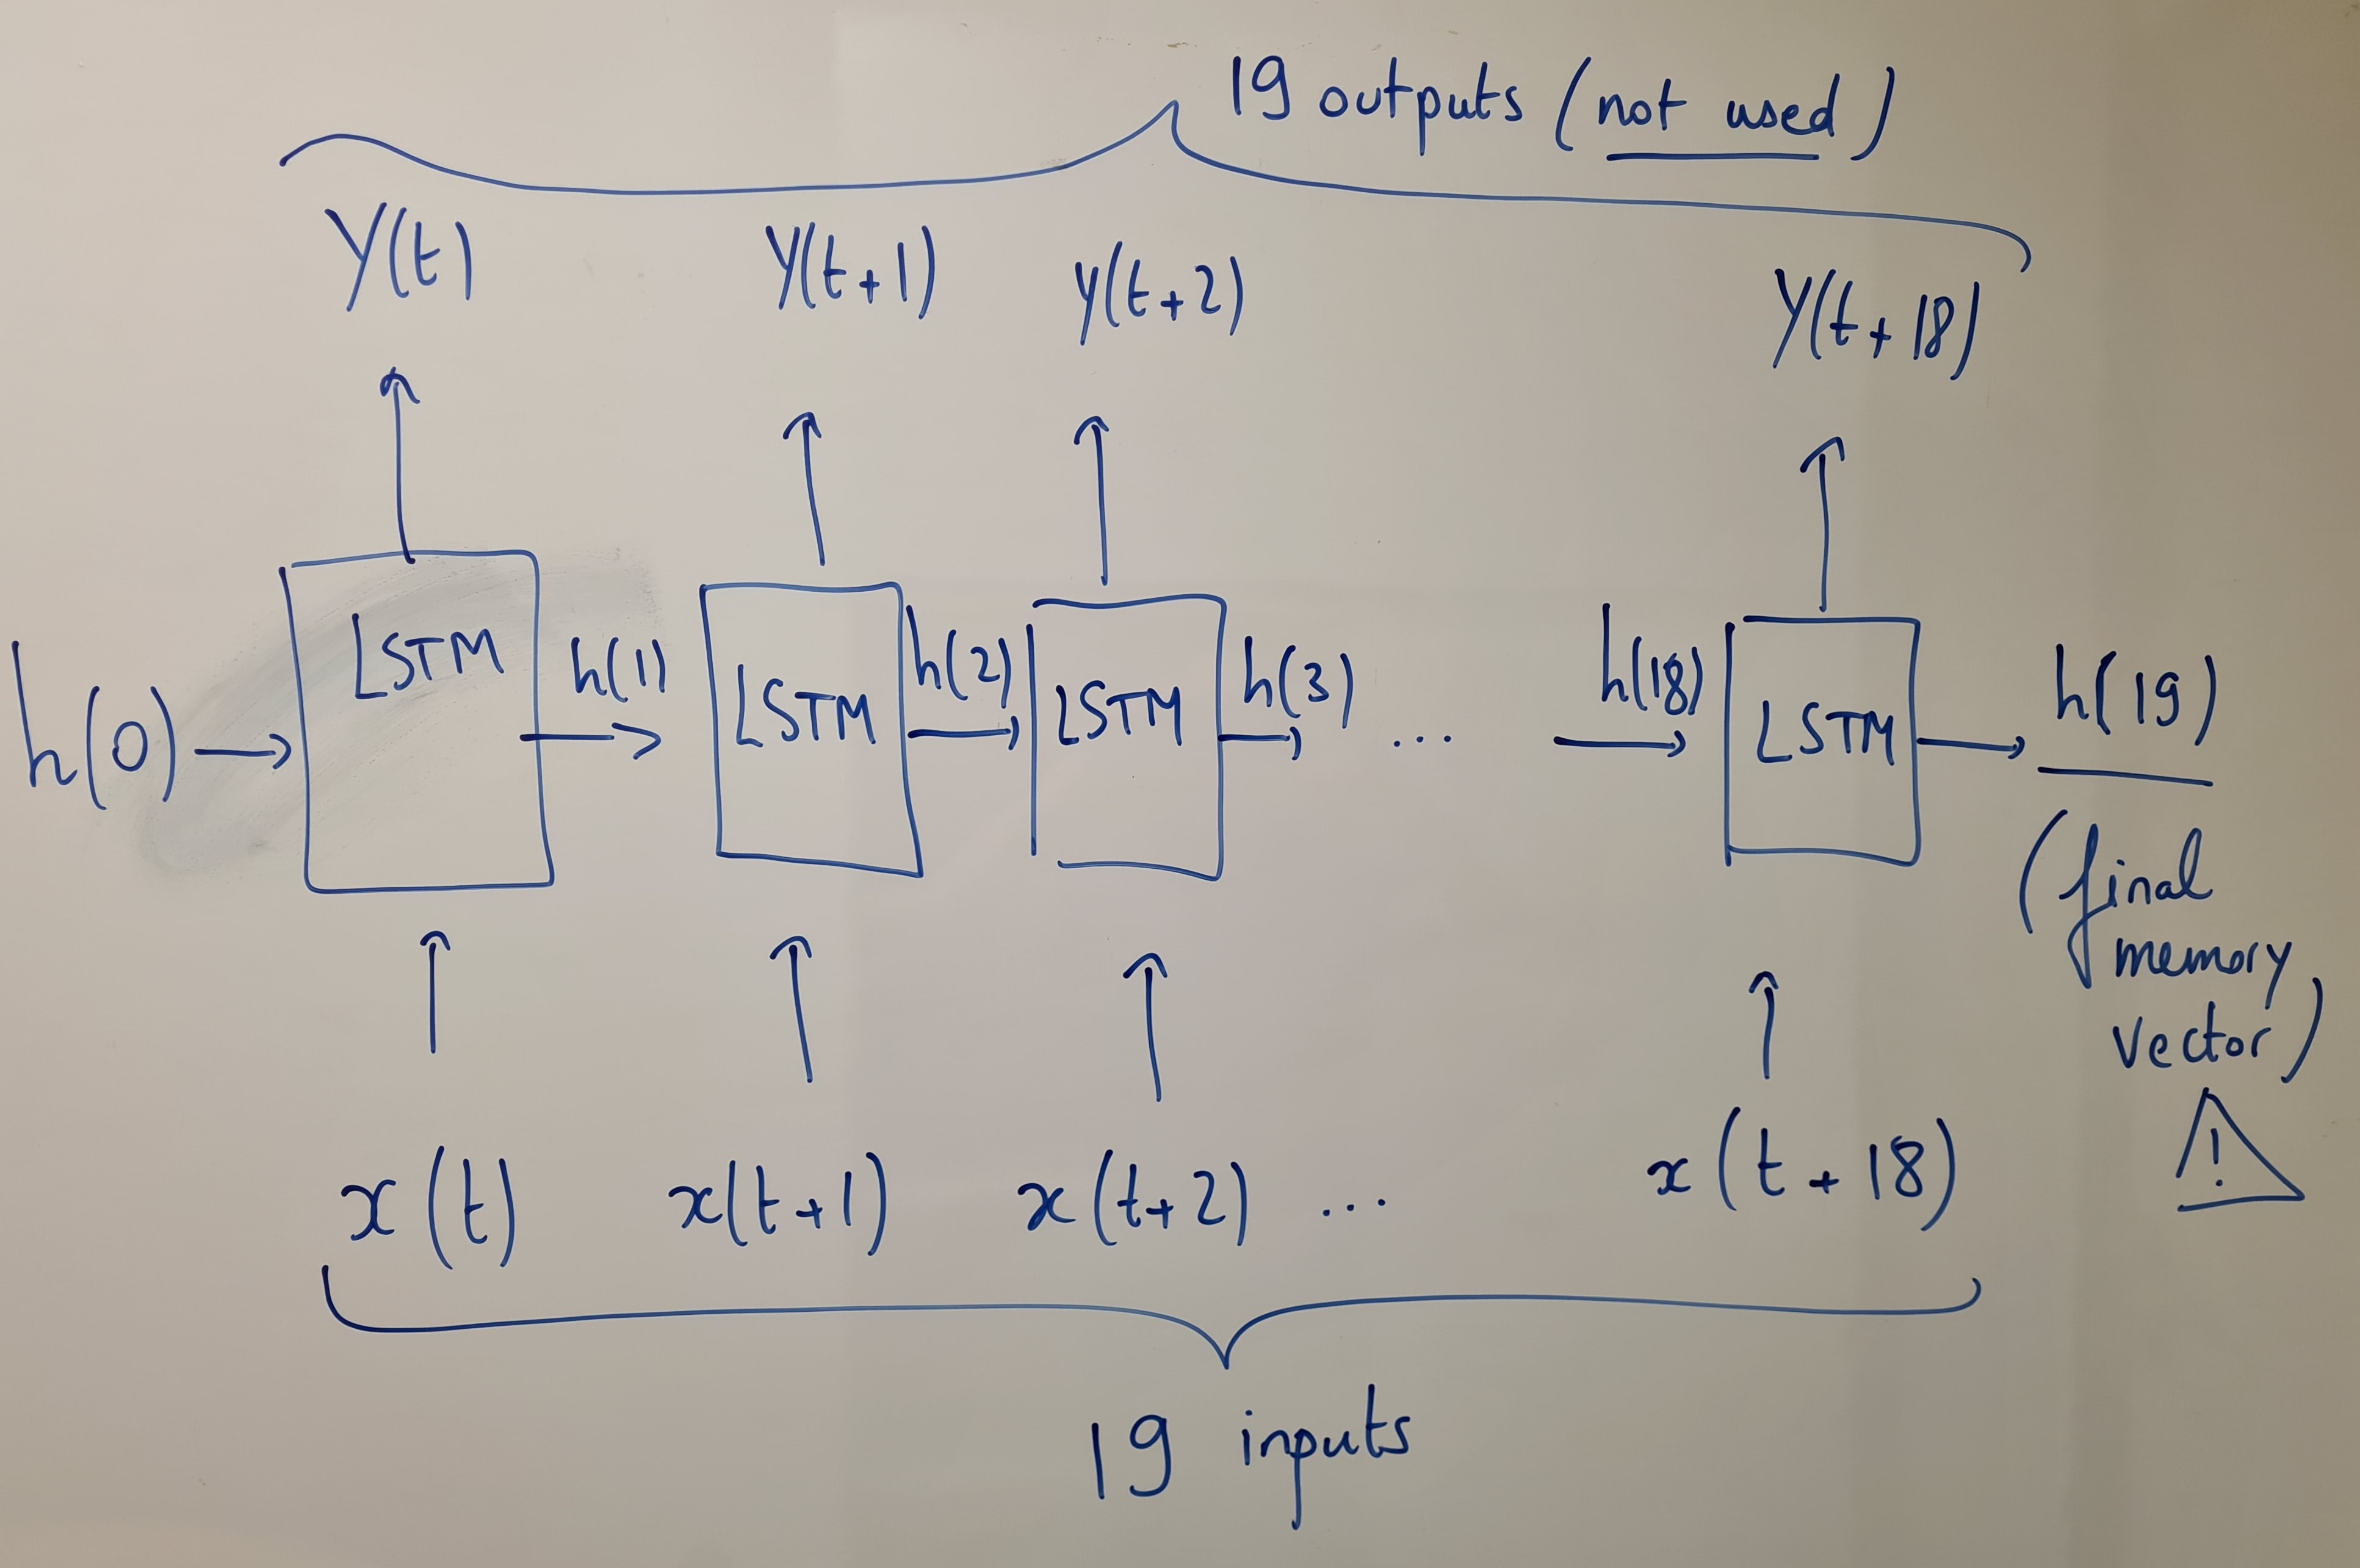 19 outputs (not used)
Y(t)
Y(t+1)
Y(t+2)
Y(t+18)
h(0)
LSTM
h(1)
LSTM
h(2)
LSTM
h(3)
...
h(18)
LSTM
h(19)
(final
memory
vector)
!
x(t)
x(t+1)
x(t+2)
...
x(t+18)
19 inputs